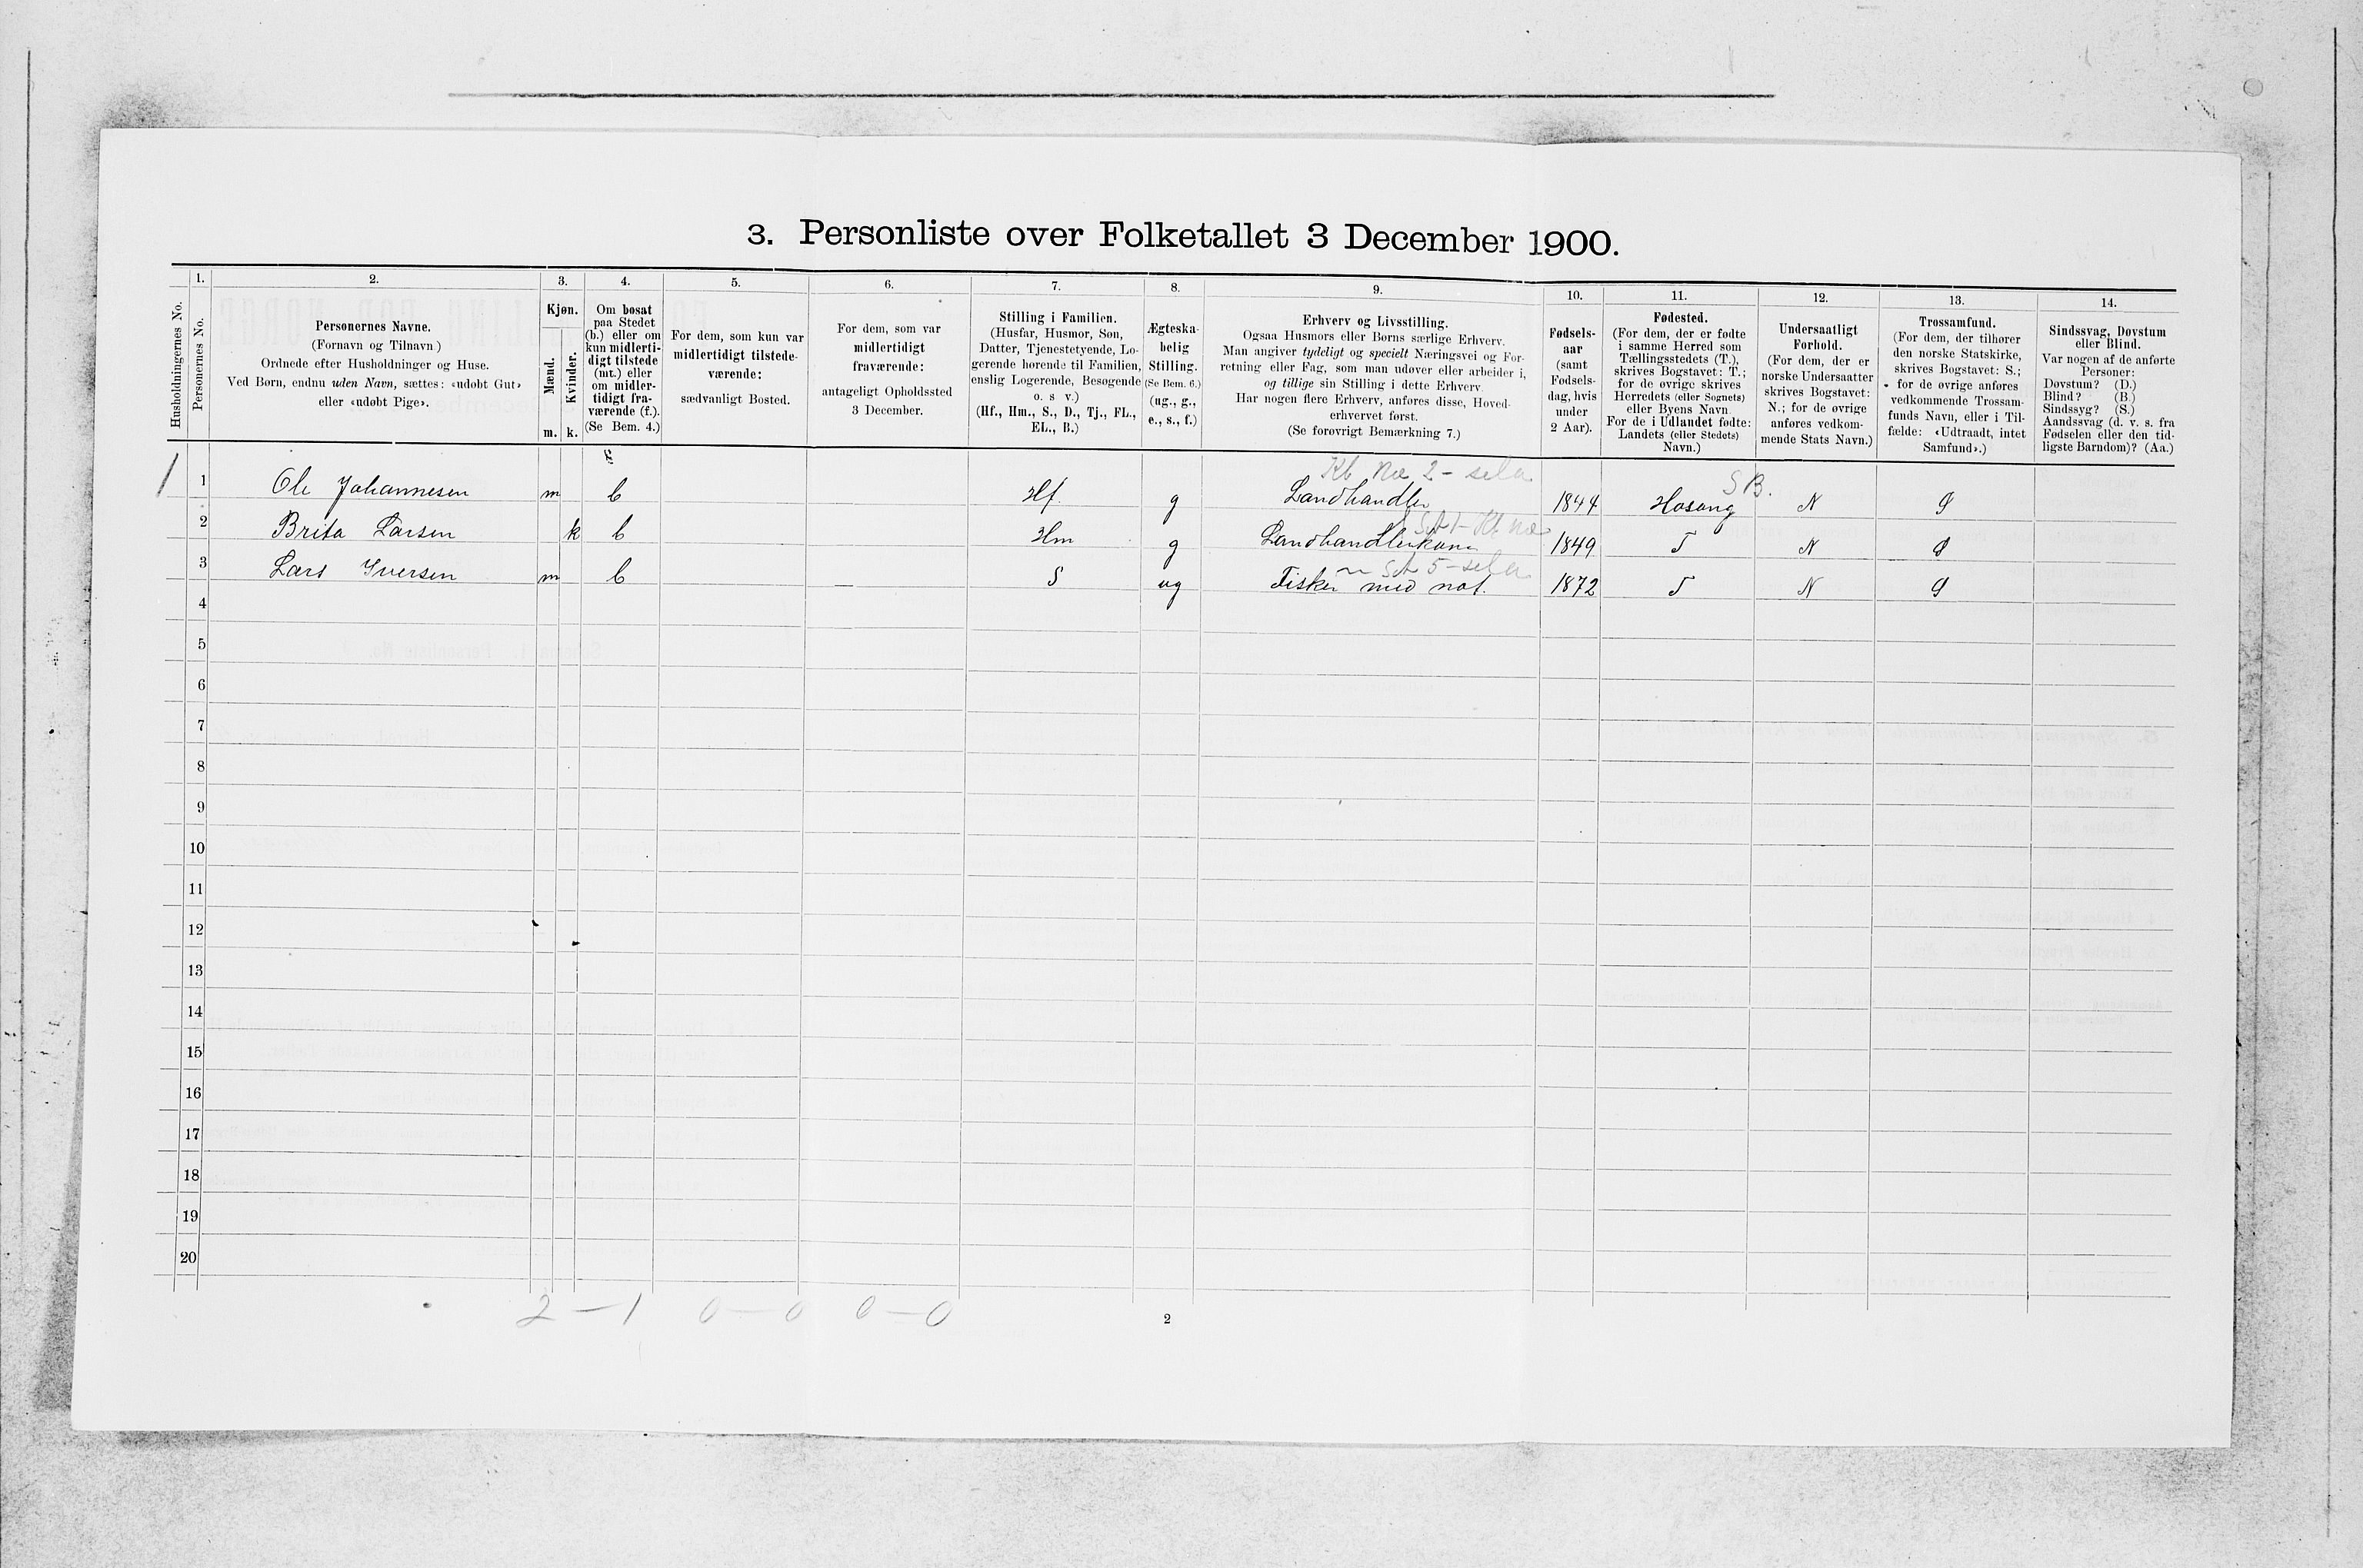 3. Personliste over Folketallet 3 December 1900.
Husholdningernes No.
1.
Personernes No.
2.
Personernes Navne.
(Fornavn og Tilnavn)
Ordnede efter Husholdninger og Huse.
Ved Børn, endnu uden Navn, sættes: «udøbt Gut»
eller «udøbt Pige».
3.
Kjøn.
Mænd.
Kvinder.
m. k.
4.
Om bosat
paa Stedet
(b.) eller om
kun midlerti-
digt tilstede
(mt.) eller
om midler-
tidigt fra-
værende (f.).
(Se Bem. 4.)
5.
For dem, som kun var
midlertidigt tilstede-
værende:
sædvanligt Bosted.
6.
For dem, som var
midlertidigt
fraværende:
antageligt Opholdssted
3 December.
7.
Stilling i Familien.
(Husfar, Husmor, Søn,
Datter, Tjenestetyende, Lo-
gerende hørende til Familien,
enslig Logerende, Besøgende
o. s. v.)
(Hf., Hm., S., D., Tj., FL.,
EL., B.)
8.
Ægteska-
belig
Stilling.
(Se Bem. 6.)
(ug., g.,
e., s., f.)
9.
Erhverv og Livsstilling.
Ogsaa Husmors eller Børns særlige Erhverv.
Man angiver tydeligt og specielt Næringsvei og For-
retning eller Fag, som man udøver eller arbeider i,
og tillige sin Stilling i dette Erhverv.
Har nogen flere Erhverv, anføres disse, Hoved-
erhvervet først.
(Se forøvrigt Bemærkning 7.)
10.
Fødsels-
aar
(samt
Fødsels-
dag, hvis
under
2 Aar).
11.
Fødested.
(For dem, der er fødte
i samme Herred som
Tællingsstedets (T.),
skrives Bogstavet: T.;
for de øvrige skrives
Herredets (eller Sognets)
eller Byens Navn.
For de i Udlandet fødte:
Landets (eller Stedets)
Navn.)
12.
Undersaatligt
Forhold.
(For dem, der er
norske Undersaatter
skrives Bogstavet:
N.; for de øvrige
anføres vedkom-
mende Stats Navn.)
13.
Trossamfund.
(For dem, der tilhører
den norske Statskirke,
skrives Bogstavet: S.;
for de øvrige anføres
vedkommende Trossam-
funds Navn, eller i Til-
fælde: «Udtraadt, intet
Samfund».)
14.
Sindssvag, Døvstum
eller Blind.
Var nogen af de anførte
Personer:
Døvstum? (D.)
Blind? (B.)
Sindssyg? (S.)
Aandssvag (d. v. s. fra
Fødselen eller den tid-
ligste Barndom)? (Aa.)
1 1 Ole Johannesen m b Hf. g Landhandler 1844 Hosang S B. N S
2 Brita Larsen k b Hm g Landhandlerkone 1849 T N S
3 Lars Iversen m b — S ug Fisker med not. 1872 T N S
4
5
6
7
8
9
10
11
12
13
14
15
16
17
18
19
20
2 – 1 0 – 0 0 – 0
2